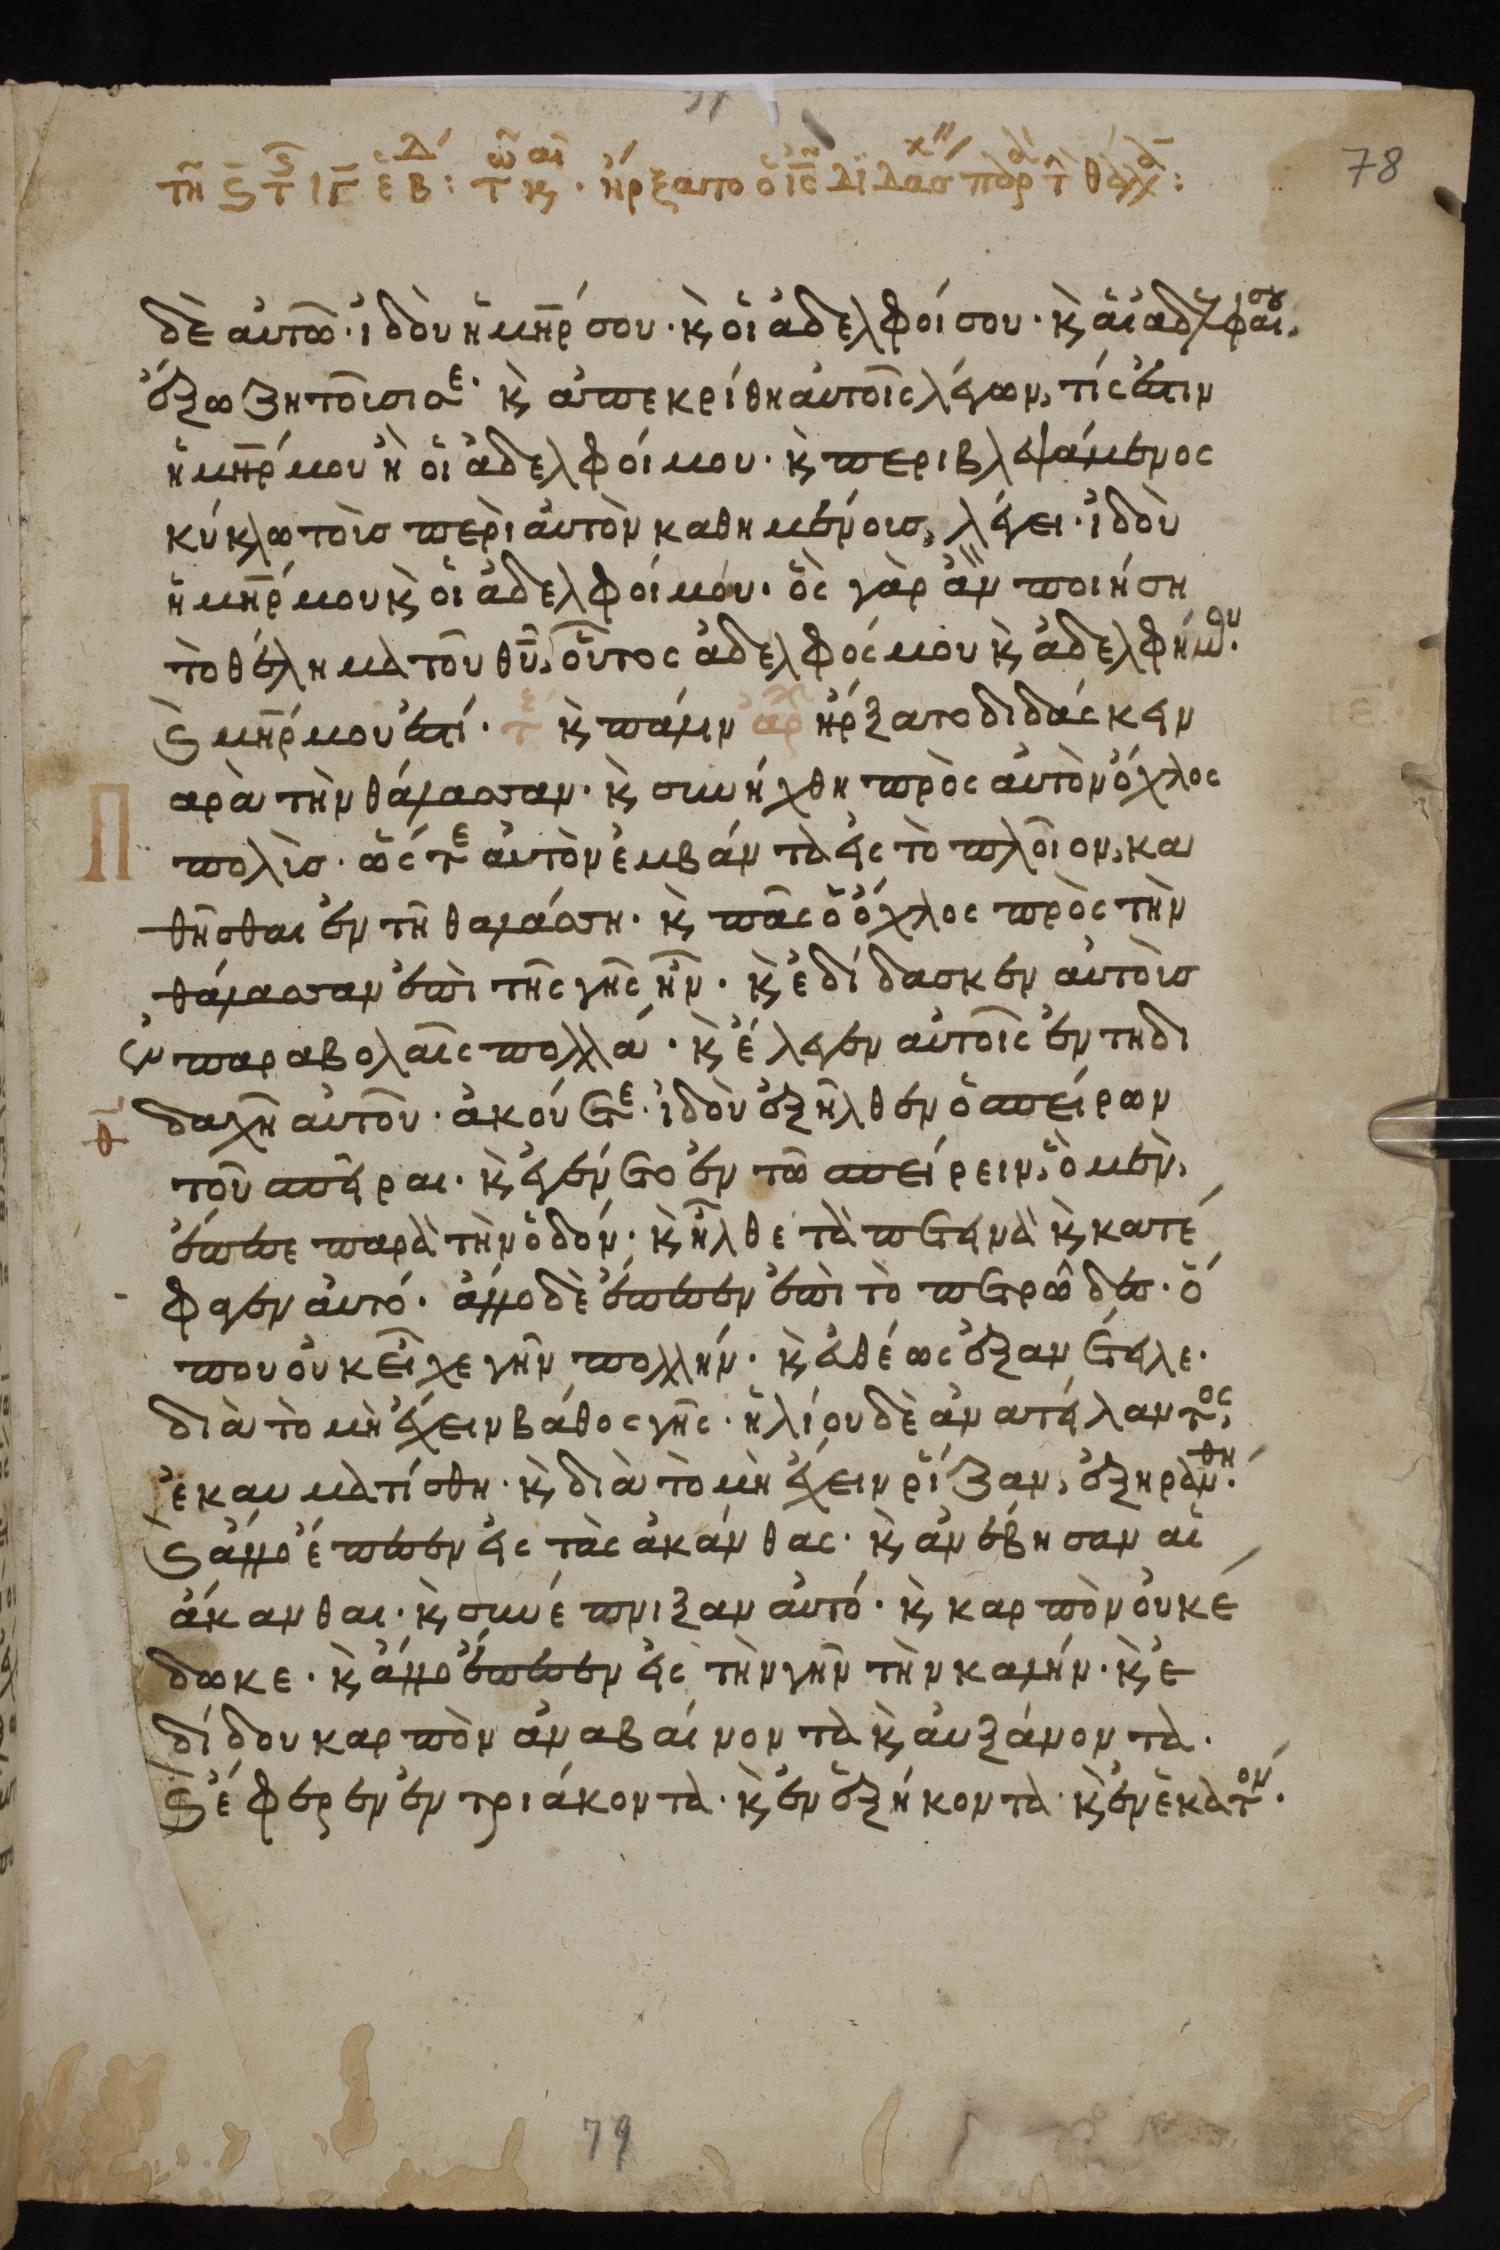 78
δὲ αὐτῶ· ἰδοὺ ἡ μη̅ρ σου· κ̀ οἱ ἀδελφοί σου· κ̀ αἱ ἀδελφαί σου,
ἔξω ζητοῦσί σε· κ̀ ἀπεκρίθη αὐτοῖς λέγων, τίς ἐστιν
ἡ μη̅ρ μου ἢ οἱ ἀδελφοί μου· κ̀ περιβλεψάμενος
κύκλω τοὺσ περὶ αὐτὸν καθημένουσ, λέγει· ἰδοὺ
ἡ μη̅ρ μου κ̀ οἱ ἀδελφοί μου· ὃς γὰρ ἂν ποιήση
τὸ θέλημα τοῦ θυ̅, οὗτος ἀδελφός μου κ̀ ἀδελφή μου·
ϛ μη̅ρ μου ἐστί· τε κ̀ πάλιν αρχ ἤρξατο διδάσκειν
Παρὰ τὴν θάλασσαν· κ̀ συνήχθη πρὸς αὐτὸν ὄχλος
πολὺσ· ὥστε αὐτὸν ἐμβάντα εἰς τὸ πλοῖον, κα
θῆσθαι ἐν τῆ θαλάσση· κ̀ πᾶς ὁ ὄχλος πρὸς τὴν
θάλασσαν ἐπὶ τῆς γῆς ἦν· κ̀ ἐδίδασκεν αὐτοὺσ
ἐν παραβολαῖς πολλά· κ̀ ἔλεγεν αὐτοῖς ἐν τη δι
δαχῆ αὐτοῦ· ἀκούετε· ἰδοὺ ἐξῆλθεν ὁ σπείρων
τοῦ σπεῖραι· κ̀ ἐγένετο ἐν τῶ σπείρειν, ὃ μὲν,
ἔπεσε παρὰ τὴν ὁδόν· κ̀ ἦλθε τὰ πετεινὰ κ̀ κατέ
φαγεν αὐτό· ἄλλο δὲ ἔπεσεν ἐπὶ τὸ πετρῶδες· ὅ
που οὐκ εἶχε γῆν πολλήν· κ̀ εὐθέως ἐξανέτειλε·
διὰ τὸ μὴ ἔχειν βάθος γῆς· ἡλίου δὲ ἀνατείλαντος,
ἐκαυματίσθη· κ̀ διὰ τὸ μὴ ἔχειν ῥίζαν, ἐξηράνθη·
ϛ ἄλλο ἔπεσεν εἰς τὰς ἀκάνθας· κ̀ ἀνέβησαν αἱ
ἄκανθαι· κ̀ συνέπνιξαν αὐτό· κ̀ καρπὸν οὐκ έ
δωκε· κ̀ ἄλλο ἔπεσεν εἰς τὴν γῆν τὴν καλήν· κ̀ ἐ
δίδου καρπὸν ἀναβαίνοντα κ̀ αὐξάνοντα·
ϛ ἔφερεν ἐν τριάκοντα· κ̀ ἐν ἑξήκοντα κ̀ ἐν ἑκατόν·
79